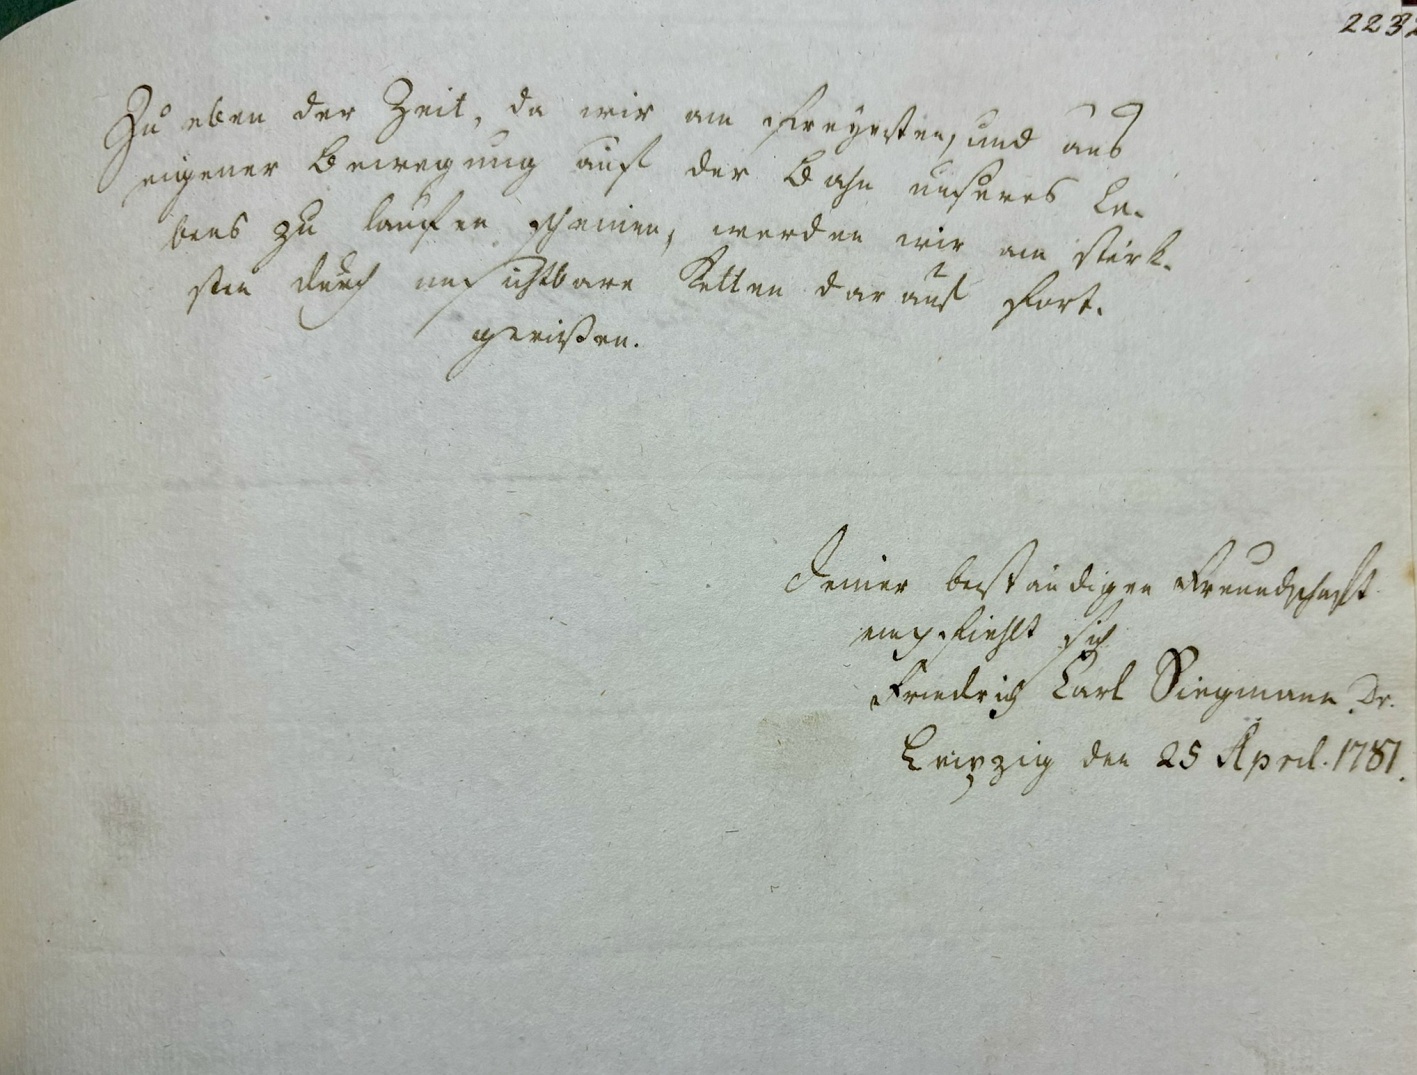 223
Zu eben der Zeit, da wir am freyesten, und aus
eigener Bewegung auf der Bahn unseres Le-
bens zu laufen scheinen, werden wir am stärk-
sten durch unsichtbare Ketten darauf fort-
gerißen.
Deiner beständigen Freundschaft
empfiehlt sich
Friedrich Carl Siegmann. Dr.
Leipzig den 25 April. 1781.